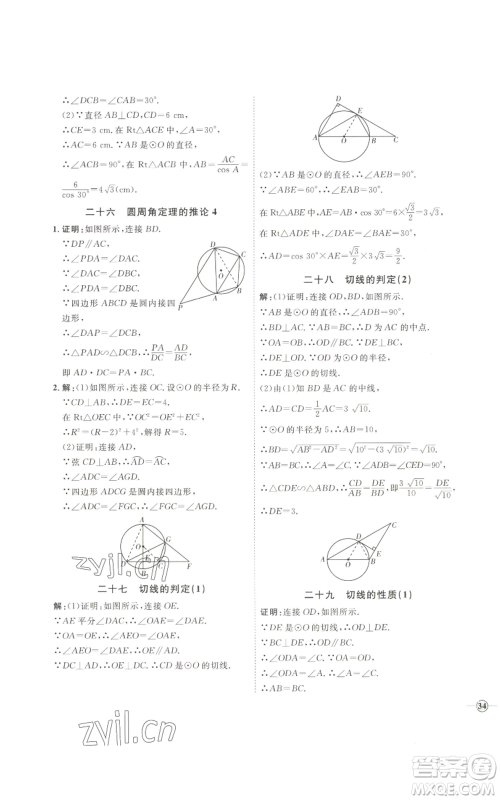 ∴∠DCB=∠CAB=30°.
(2)∵直径 AB⊥弦 CD,CD=6 cm.
∴CE=3 cm.
∵在 Rt△ACE 中,∠A=30°,
∴AC=6 cm.
∵AB 是⊙O 的直径,
∴∠ACB=90°.
∴在 Rt△ACB 中,AB=AC/cos A=
6/cos 30°=4√3(cm).
二十六 圆周角定理的推论 4
1. 证明:如图所示,连接 BD.
∵PD∥AC,
∴∠PDA=∠DAC.
∵∠DAC=∠DBC,
∴∠PDA=∠DBC.
∵四边形 ABCD 是圆内接四
边形,
∴∠DAP=∠DCB.
∴△PAD∽△DCB.
∴PA/DC=AD/BC.
即 AD·DC=PA·BC.
2. 解:(1)如图所示,连接 OC,设⊙O 的半径为 R.
∵CD⊥AB,∴DE=EC=4.
在 Rt△OEC 中,∵OC²=OE²+EC²,
∴R²=(R-2)²+4².解得 R=5.
(2)证明:连接 AD,
∵弦 CD⊥AB,∴AD=AC.
∴∠ADC=∠AGD.
∵四边形 ADCG 是圆内接四边形,
∴∠ADC=∠FGC.
∴∠FGC=∠AGD.
A
二十七 切线的判定(1)
解:(1)证明:如图所示,连接 OE.
∵AE 平分∠DAC,∴∠CAE=∠DAE.
∵OA=OE,∴∠OEA=∠OAE.
∴∠DAE=∠AEO.∴AD∥OE.
∵DC⊥AC,∴OE⊥DC.
∴CD 是⊙O 的切线.
D
E
A
O
B
C
(2)∵AB 是⊙O 的直径,
∴∠AEB=90°.
在 Rt△ABE 中,AE=AB·cos 30°=6×√3/2=3√3.
在 Rt△ADE 中,∠DAE=∠BAE=30°,
∴AD=cos 30°×AE=√3/2×3√3=9/2.
二十八 切线的判定(2)
解:(1)证明:连接 OD,BD,如图所示.
∵AB 是⊙O 的直径,∴∠ADB=90°.
∴BD⊥AC.∵AB=BC,∴AD=DC.
∵OA=OB,∴OD∥BC.
∵DE⊥BC,∴DE⊥OD.
∴DE⊥OD.∴DE 是⊙O 的切线.
(2)由(1)知,BD 是 AC 的中线,
∴AD=CD=1/2AC=3√10.
∵⊙O 的半径为 5,∴AB=10.
∴BD=√(AB²-AD²)=√(10²-(3√10)²)=√10.
∵∠CDB=∠DEB=90°,∠C=∠C.
∴△CDE∽△CBD.∴CD/CB=DE/BD,即3√10/10=DE/√10.
∴DE=3.
C
D
E
A
O
B
二十九 切线的性质(1)
证明:连接 OD,如图所示.
∵DE 是⊙O 的切线,∴DE⊥OD.
∴∠ODE=90°.
∵∠DEA=90°,
∴OD∥AC.
∴∠ODA=∠DAC.
∵OA=OD,∴∠OAD=∠ODA.
∴∠OAD=∠DAC.
∴AD 平分∠BAC.
34
zyjl.cn
zyjl.cn